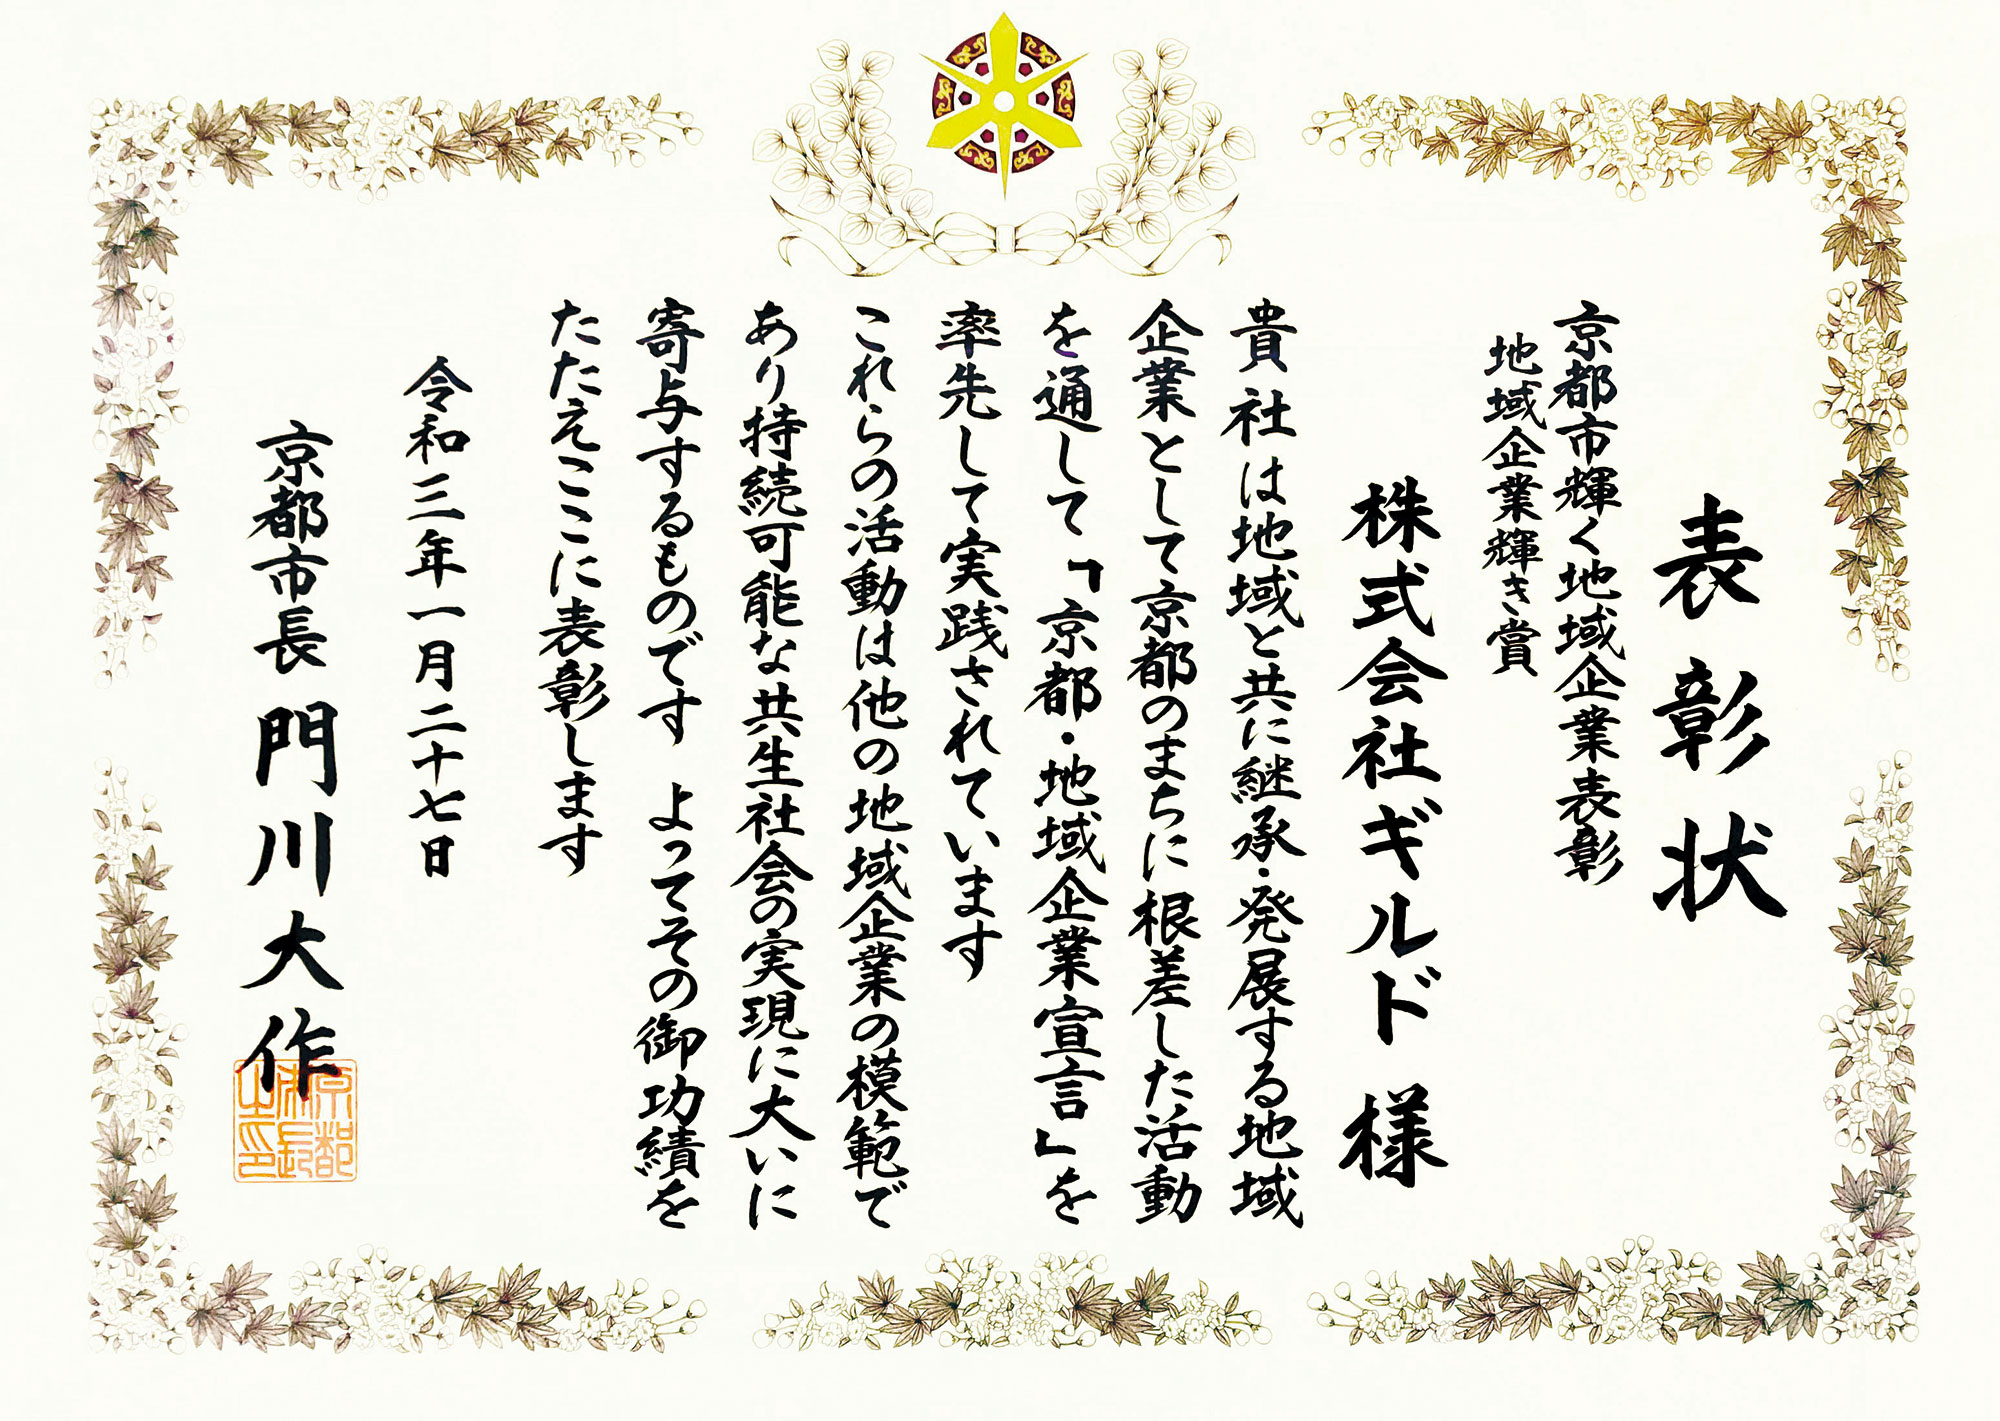 表彰状
京都市輝く地域企業表彰
地域企業輝き賞
株式会社ギルド 様
貴社は地域と共に継承・発展する地域
企業として京都のまちに根差した活動
を通して「京都・地域企業宣言」を
率先して実践されています
これらの活動は他の地域企業の模範で
あり持続可能な共生社会の実現に大いに
寄与するものです よってその御功績を
たたえここに表彰します
令和三年一月二十七日
京都市長 門川大作
京都
市長
之印